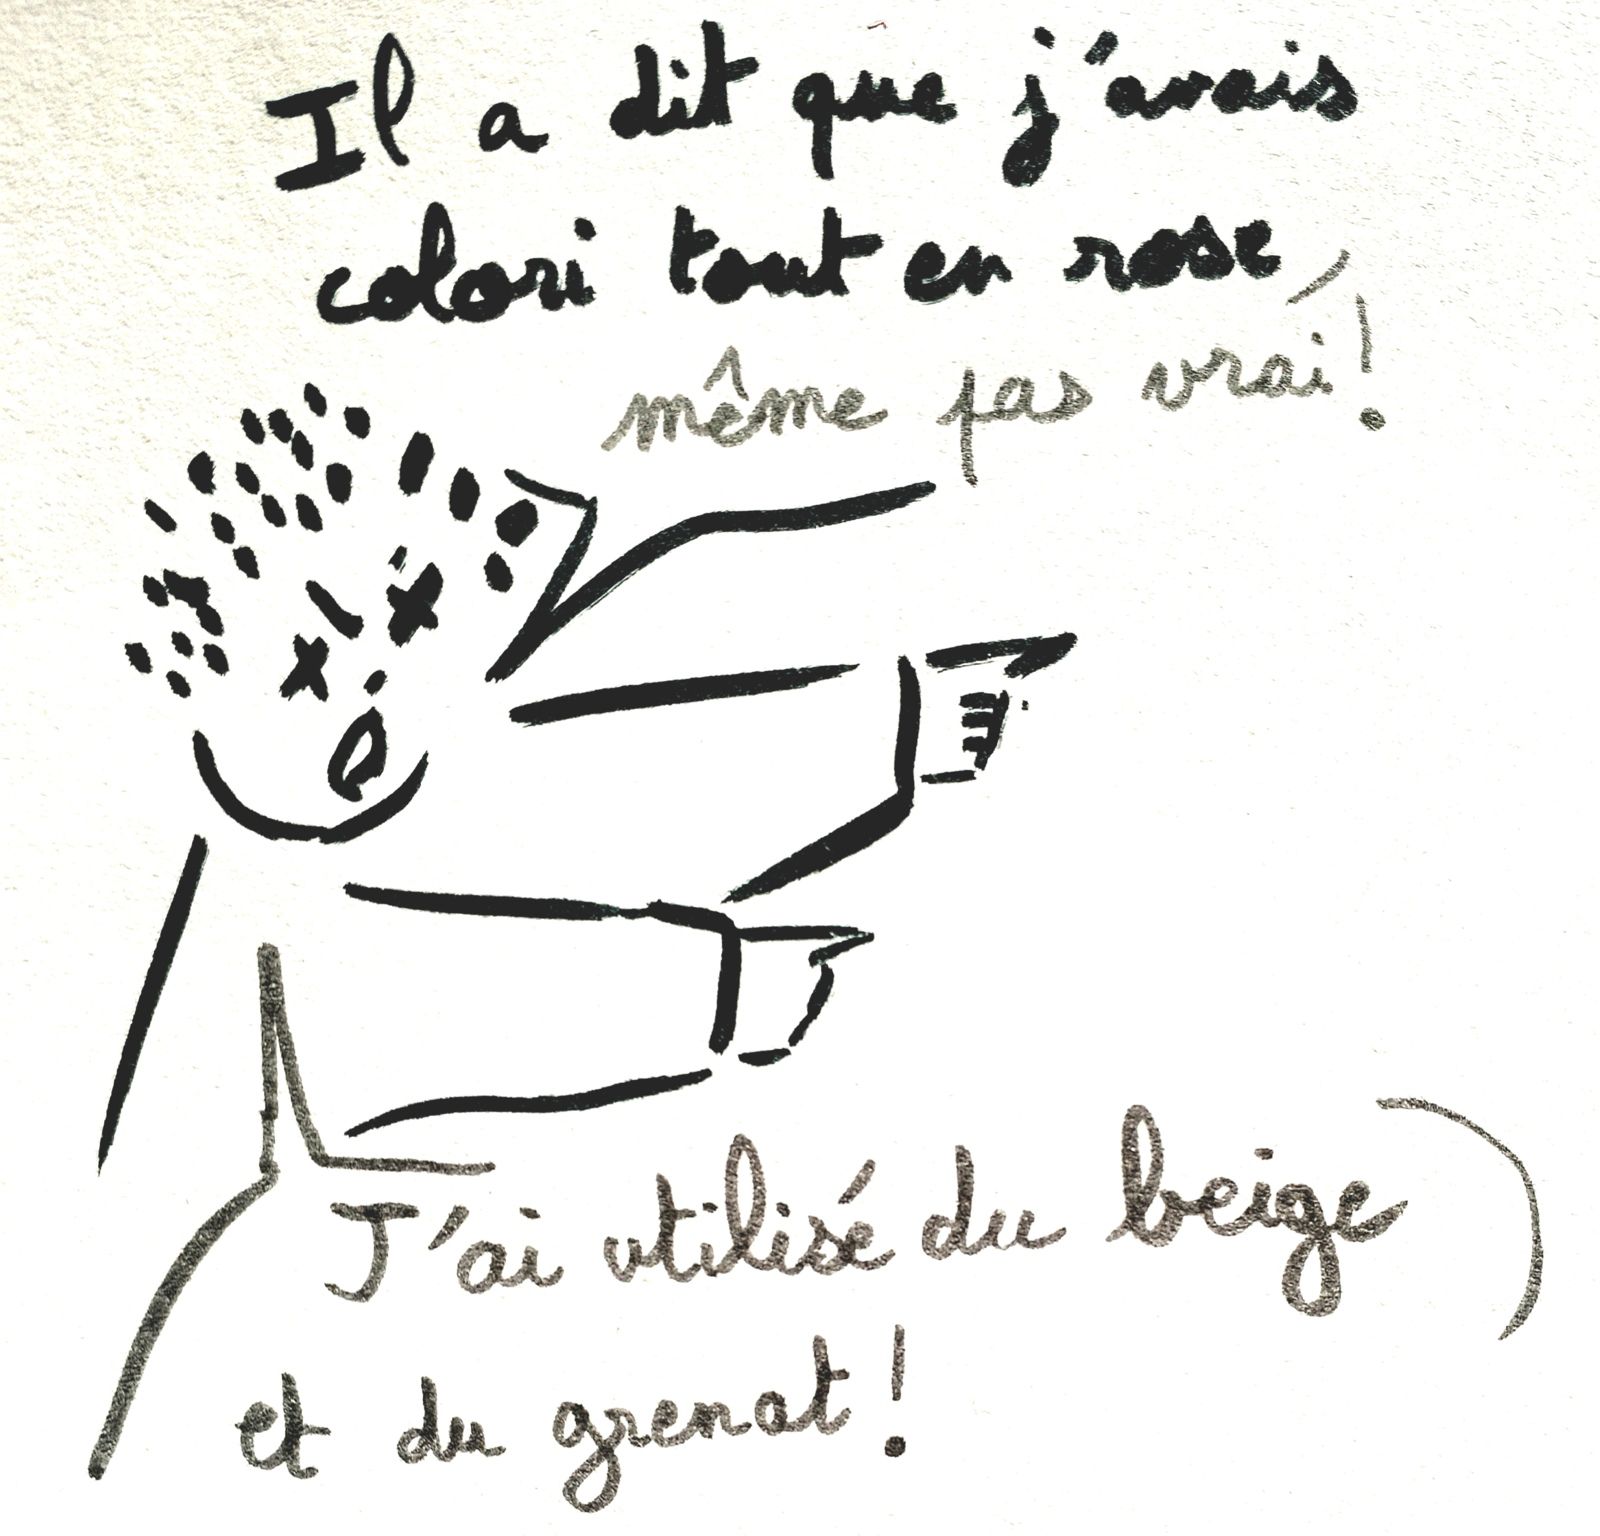 Il a dit que j'avais
colori tout en rose,
même pas vrai!
J'ai utilisé du beige
et du grenat!